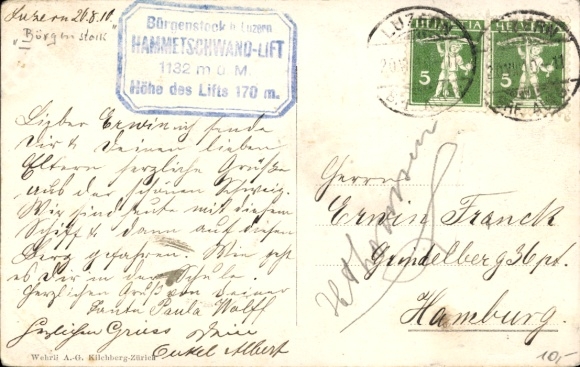 Luzern 20.8.10.
"Bürgenstock
Bürgenstock b. Luzern
HAMMETSCHWAND-LIFT
1132 m ü M.
Höhe des Lifts 170 m.
LUZERN
HELVETIA
5
5
LUZERN
Lieber Erwin ich sende
Dir & Deinen lieben
Eltern herzliche Grüße
aus der schönen Schweiz.
Wir sind heute mit diesem
Schiff & dann auf diesen
Berg gefahren. Wie geht
es Dir in der Schule.
Herzlichen Gruß von Deiner
Tante Paula Wolff
Herzlichen Gruss Dein
Onkel Albert
Wehrli A.-G. Kilchberg-Zürich
Herrn
Erwin Franck
Grindelberg 36 pt.
Hamburg.
10,-